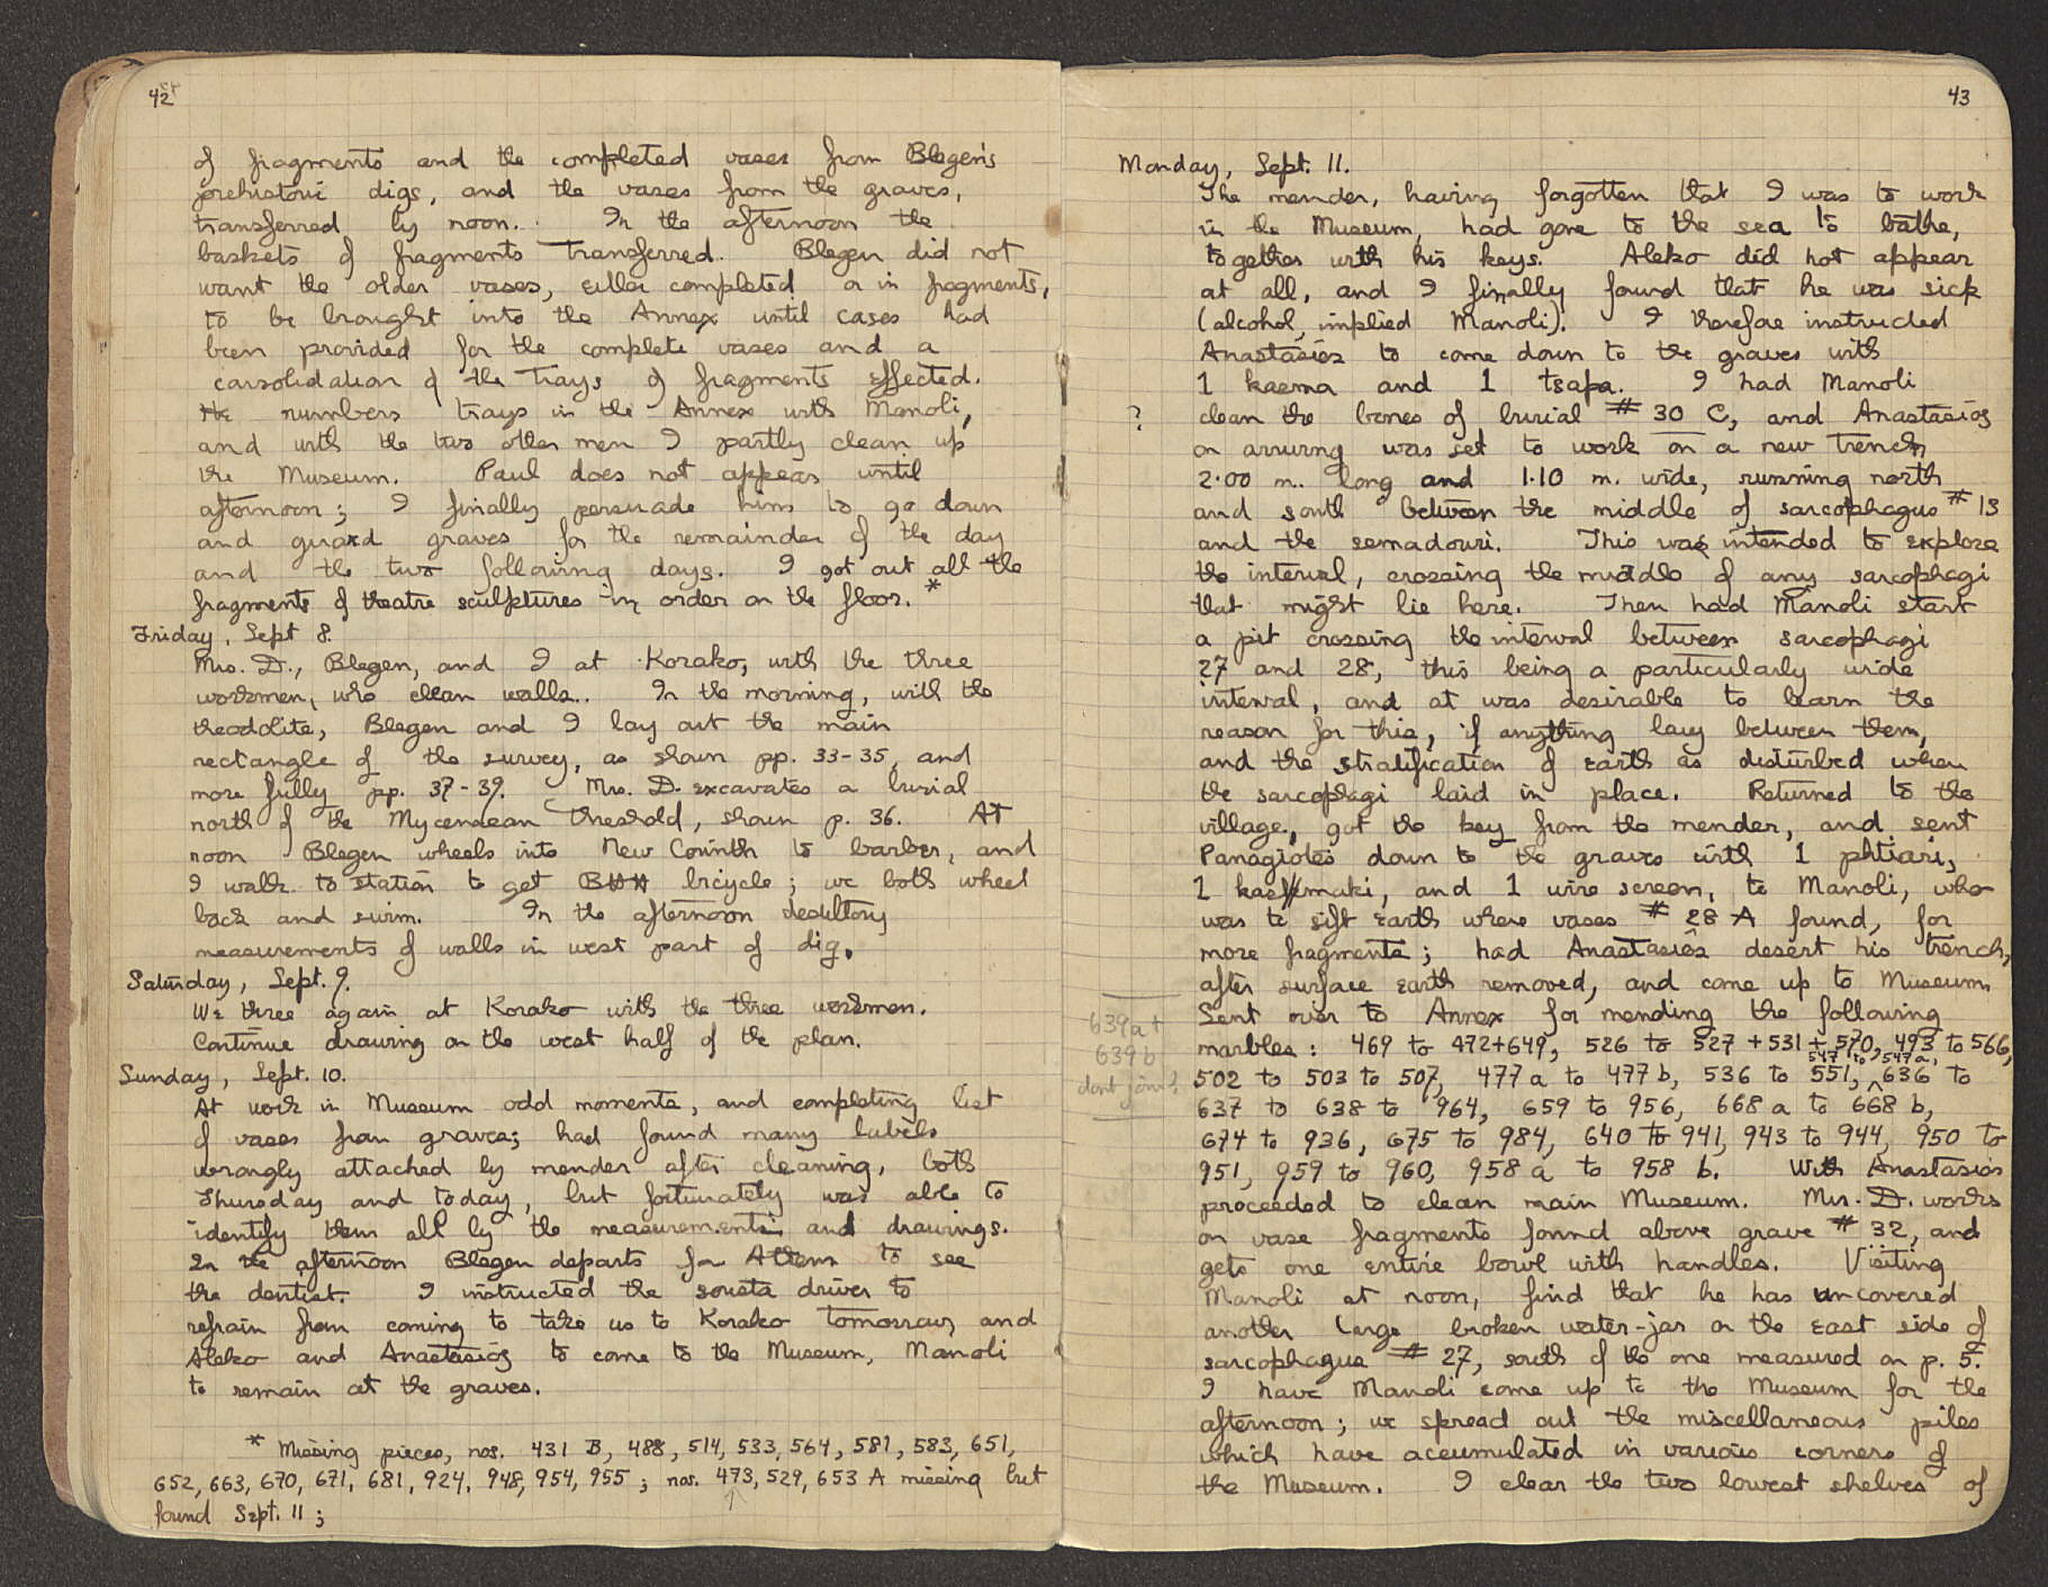 42
of fragments and the completed vases from Blegen's
prehistoric digs, and the vases from the graves,
transferred by noon. In the afternoon the
baskets of fragments transferred. Blegen did not
want the older vases, either completed or in fragments,
to be brought into the Annex until cases had
been provided for the complete vases and a
consolidation of the trays of fragments effected.
He numbers trays in the Annex with Manoli,
and with the two other men I partly clean up
the Museum. Paul does not appear until
afternoon; I finally persuade him to go down
and guard graves for the remainder of the day
and the two following days. I got out all the
fragments of theatre sculptures in order on the floor. *
Friday, Sept 8.
Mrs. D., Blegen, and I at Korako, with the three
workmen, who clean walls. In the morning, with the
theodolite, Blegen and I lay out the main
rectangle of the survey, as shown pp. 33-35, and
more fully pp. 37-39. Mrs. D. excavates a burial
north of the Mycenaean threshold, shown p. 36. At
noon Blegen wheels into New Corinth to barber, and
I walk to station to get bicycle; we both wheel
back and swim. In the afternoon desultory
measurements of walls in west part of dig.
Saturday, Sept. 9.
We three again at Korako with the three workmen.
Continue drawing on the west half of the plan.
Sunday, Sept. 10.
At work in Museum odd moments, and completing list
of vases from graves; had found many labels
wrongly attached by mender after cleaning, both
Thursday and today, but fortunately was able to
identify them all by the measurements and drawings.
In the afternoon Blegen departs for Athens to see
the dentist. I instructed the sousta driver to
refrain from coming to take us to Korako tomorrow, and
Aleko and Anastasios to come to the Museum, Manoli
to remain at the graves.
* Missing pieces, nos. 431 B, 488, 514, 533, 564, 581, 583, 651,
652, 663, 670, 671, 681, 924, 948, 954, 955; nos. 473, 529, 653 A missing but
found Sept. 11;
43
Monday, Sept. 11.
The mender, having forgotten that I was to work
in the Museum, had gone to the sea to bathe,
together with his keys. Aleko did not appear
at all, and I finally found that he was sick
(alcohol, implied Manoli). I therefore instructed
Anastasios to come down to the graves with
1 kasma and 1 tsapa. I had Manoli
? clean the bones of burial # 30 C, and Anastasios
on arriving was set to work on a new trench
2.00 m. long and 1.10 m. wide, running north
and south between the middle of sarcophagus # 13
and the semadouri. This was intended to explore
the interval, crossing the middle of any sarcophagi
that might lie here. Then had Manoli start
a pit crossing the interval between sarcophagi
27 and 28, this being a particularly wide
interval, and it was desirable to learn the
reason for this, if anything lay between them,
and the stratification of earth as disturbed when
the sarcophagi laid in place. Returned to the
village, got the key from the mender, and sent
Panagiotes down to the graves with 1 phtiari,
1 kasmaki, and 1 wire screen, to Manoli, who
was to sift earth where vases # 28 A found, for
more fragments; had Anastasios desert his trench,
after surface earth removed, and come up to Museum.
Sent over to Annex for mending the following
639a +
639b
dont join!
marbles: 469 to 472+649, 526 to 527 +531 + 570, 493 to 566,
547 to 547a,
502 to 503 to 507, 477a to 477b, 536 to 551, 636 to
637 to 638 to 964, 659 to 956, 668a to 668b,
674 to 936, 675 to 984, 640 to 941, 943 to 944, 950 to
951, 959 to 960, 958a to 958b. With Anastasios
proceeded to clean main Museum. Mrs. D. works
on vase fragments found above grave # 32, and
gets one entire bowl with handles. Visiting
Manoli at noon, find that he has uncovered
another large broken water-jar on the east side of
sarcophagus # 27, south of the one measured on p. 5.
I have Manoli come up to the Museum for the
afternoon; we spread out the miscellaneous piles
which have accumulated in various corners of
the Museum. I clear the two lowest shelves of